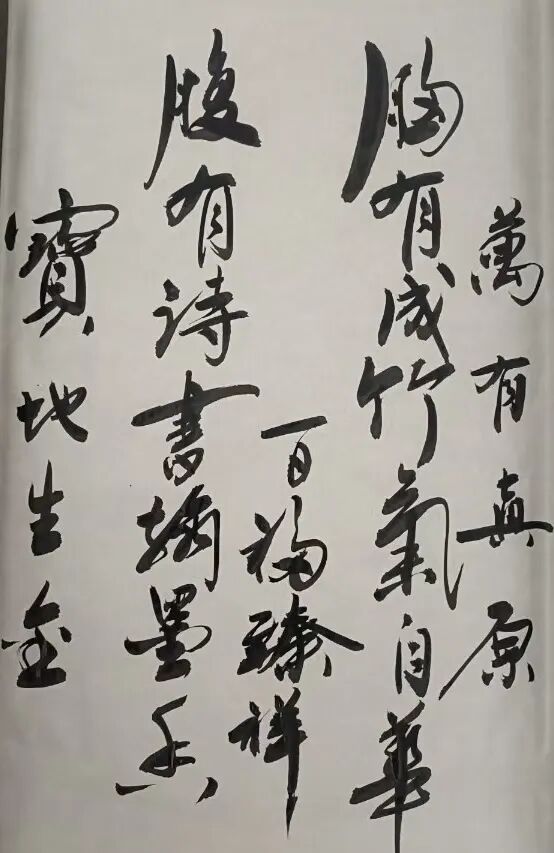 萬有真原
胸有成竹氣自華
百福臻祥
腹有詩書翰墨香
寶地生金